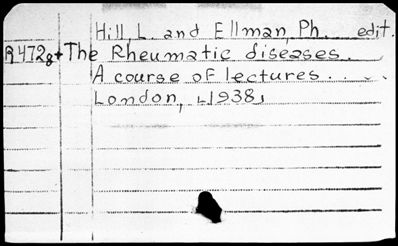 Hill, L. and Ellman, Ph. edit.
R4728+ The Rheumatic diseases.
A course of lectures. . . .
London, [1938]